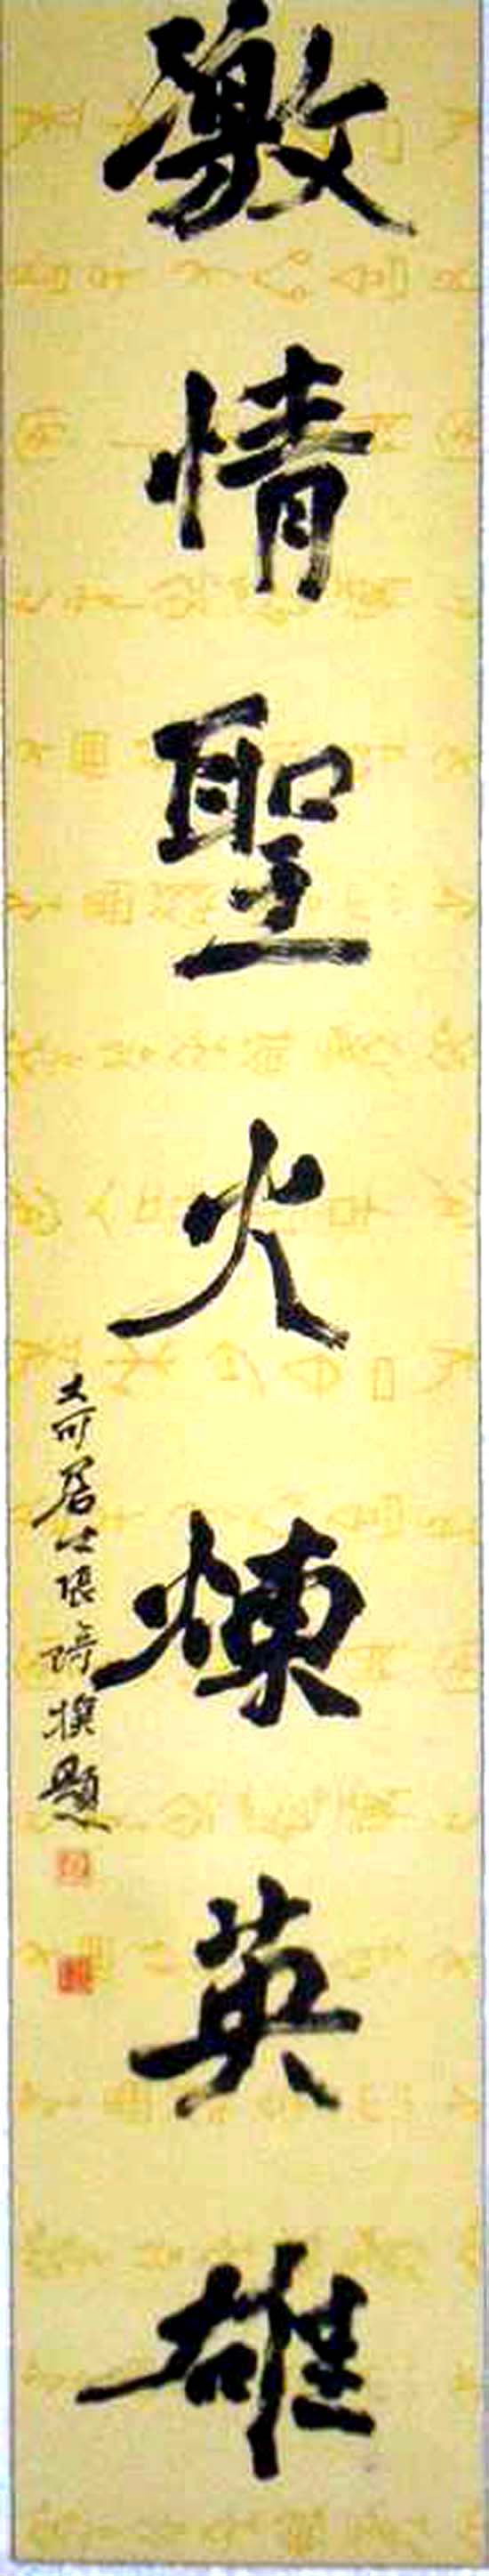 激情聖火煉英雄
大可居士張琦換題